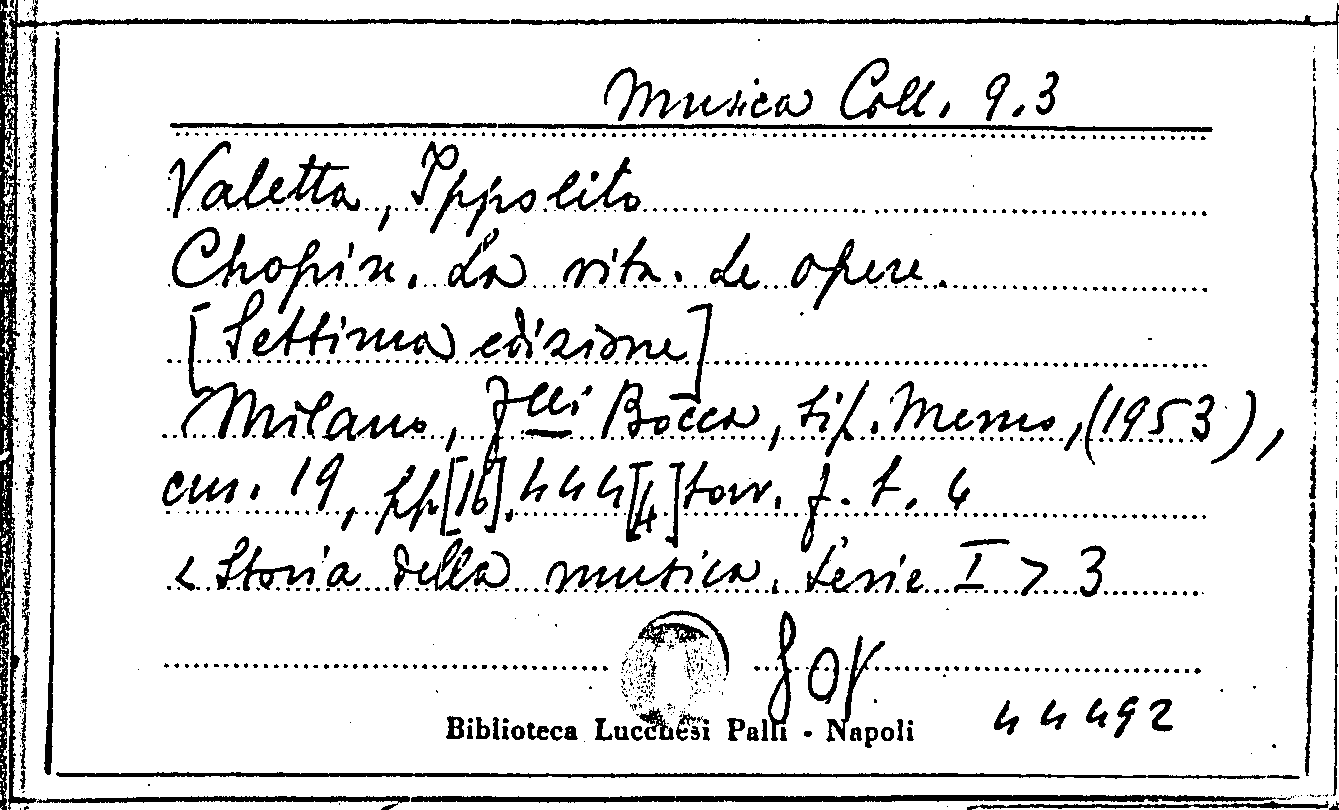 Musica Coll. 9.3
Valetta, Ippolito
Chopin. La vita. Le opere.
[Settima edizione]
Milano, F.lli Bocca, tip. Memo, (1953),
cm. 19, pp. [16]. 444 [4] tav. f. t. 4
< Storia della musica. Serie I > 3
Biblioteca Lucchesi Palli - Napoli
44492